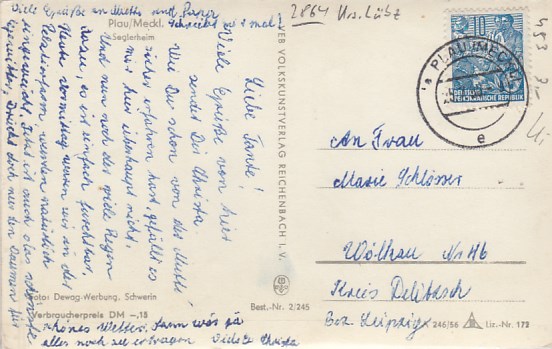 Viele Grüße an Mutti und
schreibt es i mal!
Plau/Meckl.
Seglerheim
2864 Krs. Lübz
483
Liebe Tante!
Viele Grüße von hier
sendet Dir Christa
Wie Du schon von der Mutti
sicher erfahren hast, gefällt es
mir hier überhaupt nicht.
Und nun noch der viele Regen
dazu, es ist einfach furchtbar.
Heute vormittag waren wir in der
werden natürlich
eingeweicht. Jetzt ist auch das schönste
drückt doch nur den Daumen für
schönes Wetter, dann wär ja
alles noch zu ertragen Christa
Foto: Dewag-Werbung, Schwerin
Verbraucherpreis DM -,15
Best.-Nr. 2/245
VEB VOLKSKUNSTVERLAG REICHENBACH I. V.
10
DEUTSCHE
DEMOKRATISCHE REPUBLIK
PLAU (MECKL)
e
An Frau
Marie Schlösser
Wölkau Nr 46
Kreis Delitzsch
Bez. Leipzig
246/56 Liz.-Nr. 172